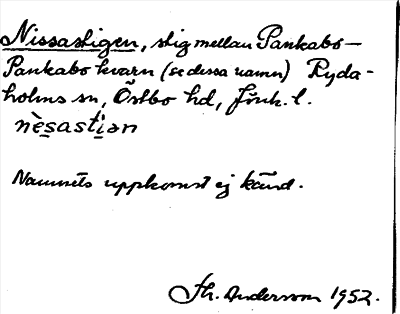 Nissastigen, stig mellan Pankabo–
Pankabo kvarn (se dessa namn) Ryda-
holms sn, Östbo hd, Jönk. l.
nèsastiən
Namnets uppkomst ej känd.
Th. Andersson 1952.